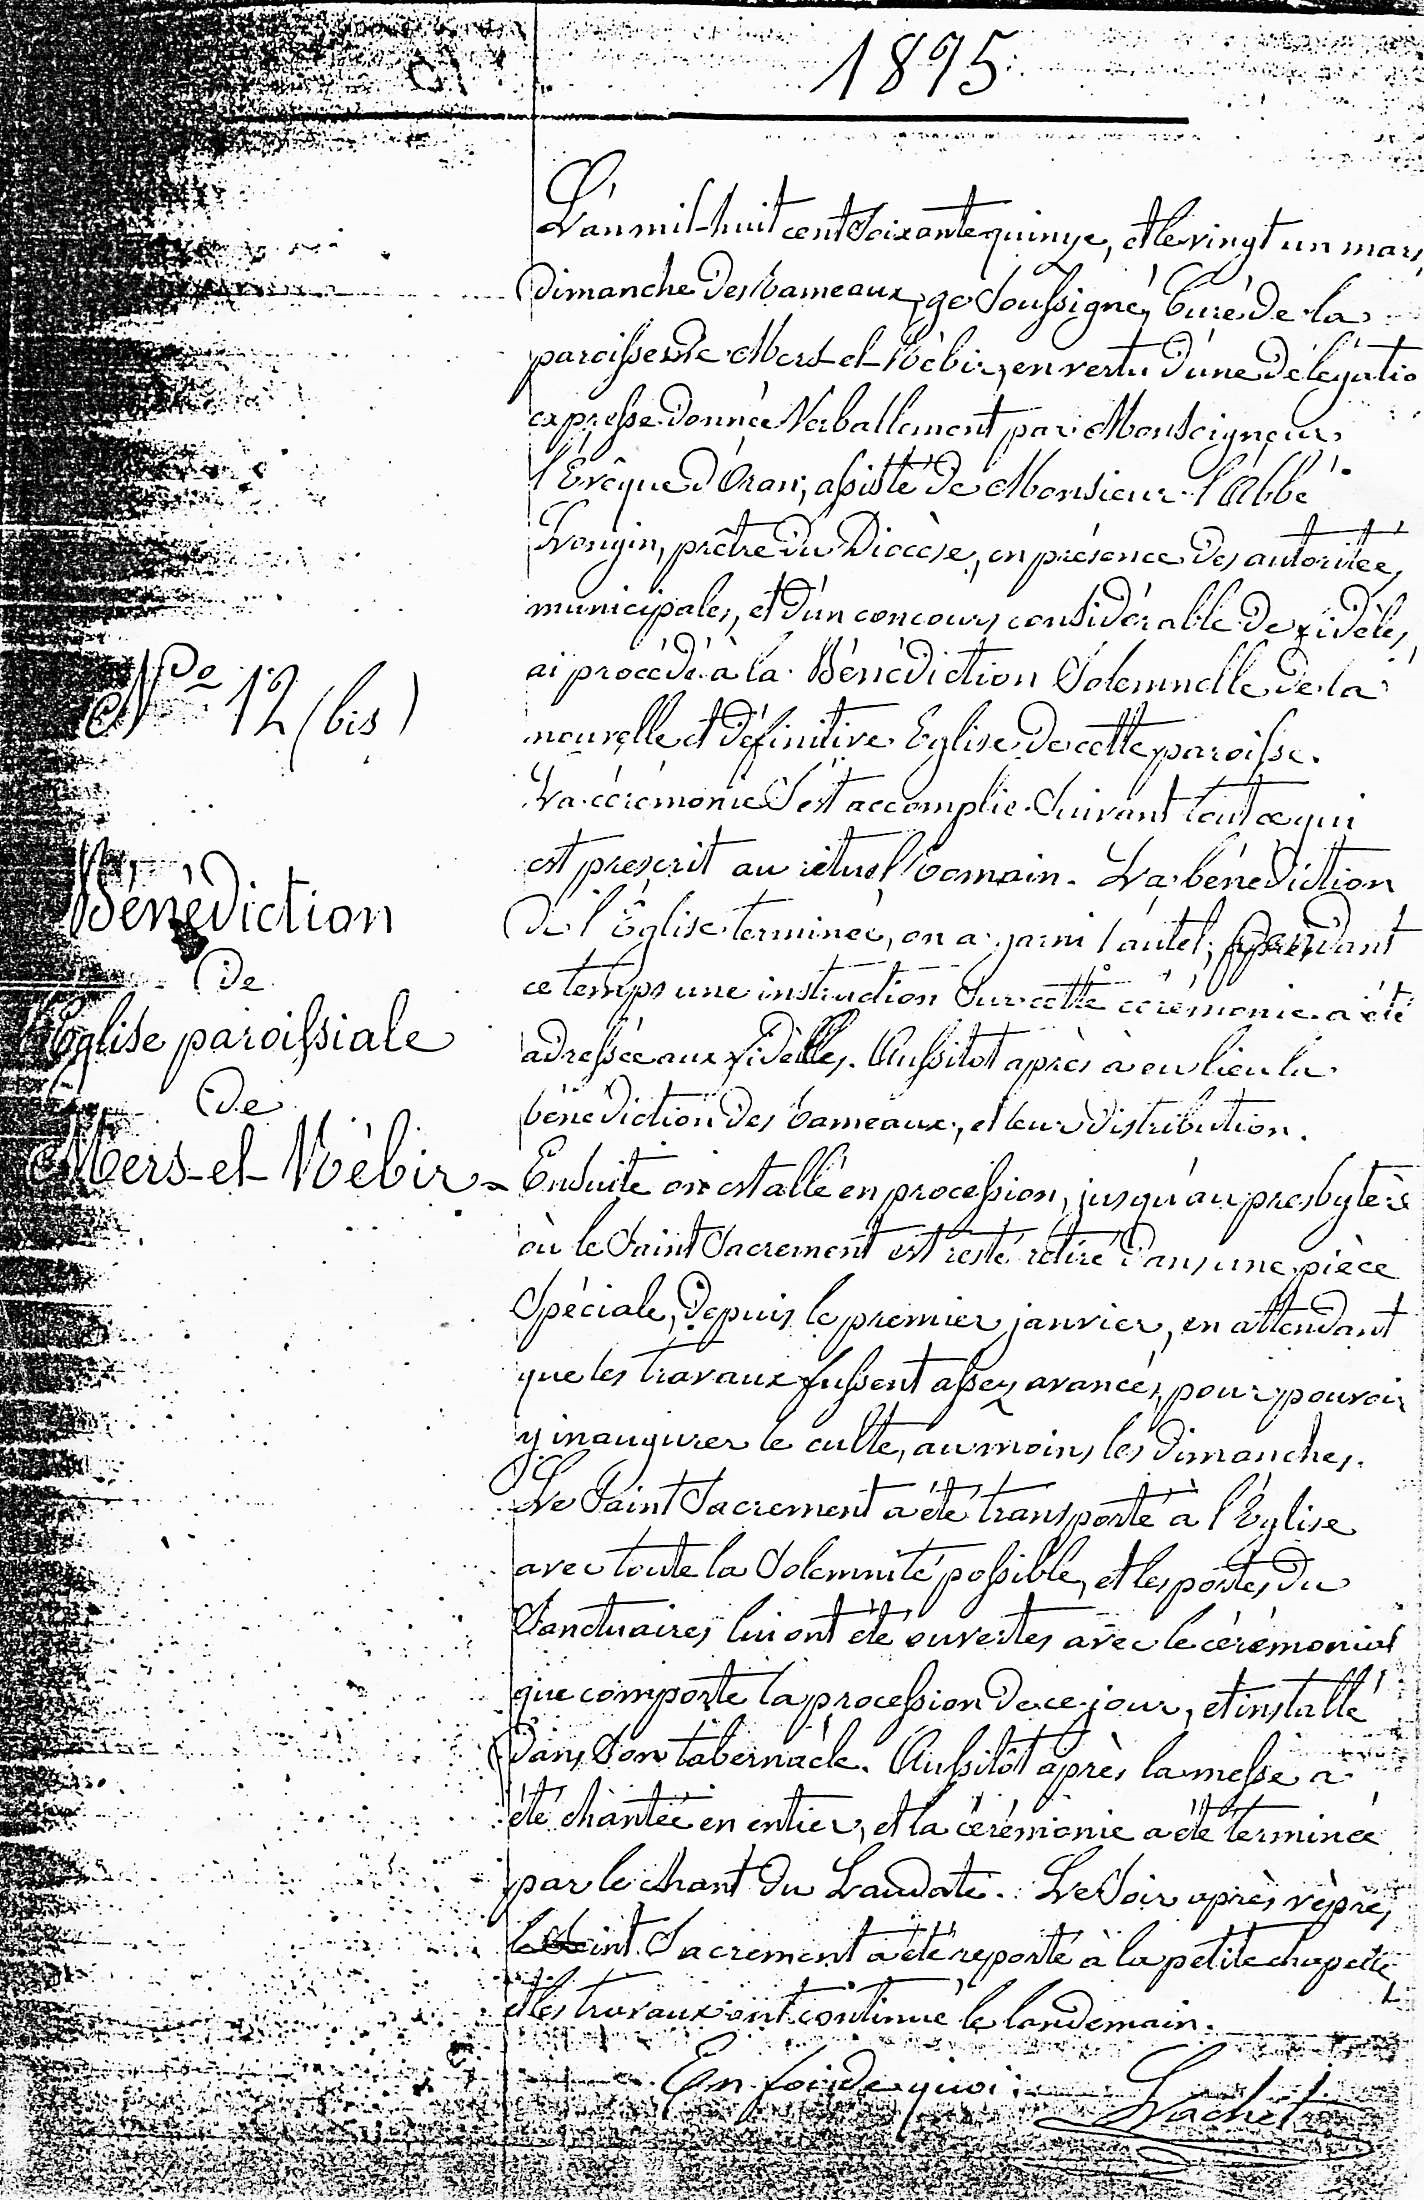 1895
L'an mil-huit cent soixante quinze, et le vingt un mars,
dimanche des Rameaux, je soussigné, Curé de la
paroisse de Mers-el-Kèbir, en vertu d'une délégatio
expresse donnée Verballement par Monseigneur
l'Evêque d'Oran, assisté de Monsieur l'Abbé
Longin, prêtre du Diocèse, en présence des autoritées
municipales, et d'un concours considérable de fidèles,
ai procédé à la Bénédiction Solemnelle de la
nouvelle et définitive Eglise de cette paroisse.
La cérémonie s'est accomplie suivant tout ce qui
est prescrit au rituel Romain. La bénédiction
de l'Église terminée, on a garni l'autel; pendant
ce temps une instruction sur cette cérémonie a été
adressée aux fidelles. Aussitot après à eu lieu la
bénédiction des Rameaux, et leur distribution.
Ensuite on est allé en procession, jusqu'au presbytère
où le Saint Sacrement est resté retiré dans une pièce
Spéciale, depuis le premier janvier, en attendant
que les travaux fussent assez avancés, pour pouvoir
y inaugurer le culte, au moins les dimanches.
Le Saint Sacrement a été transporté à l'Église
avec toute la Solemnité possible, et les portes du
Sanctuaires lui ont été ouvertes avec le cérémonial
que comporte la procession de ce jour, et installé
dans Son tabernàcle. Aussitôt après la messe a
été chantée en entier, et la cérémonie a été terminée
par le chant du Laudate. Le Soir après vèpres,
le Saint Sacrement a été reporté à la petite chapelle
et les travaux ont continué le landemain.
En foi de quoi:
Lachet
N.do 12 (bis)
Bénédiction
de
l'Eglise paroissiale
de
Mers-el-Kèbir